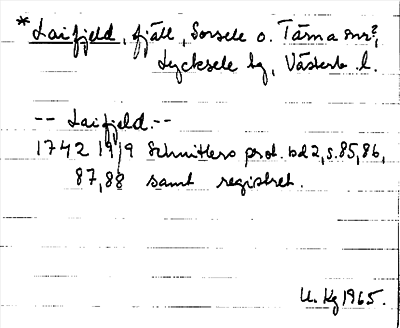 *Laifjeld, fjäll, Sorsele o. Tärna snr?,
Lycksele lg, Västerb. l.
-- Laifjeld.--
1742 19/9 Schnitlers prot. bd 2, s. 85, 86,
87, 88 samt registret.
U. Hg 1965.